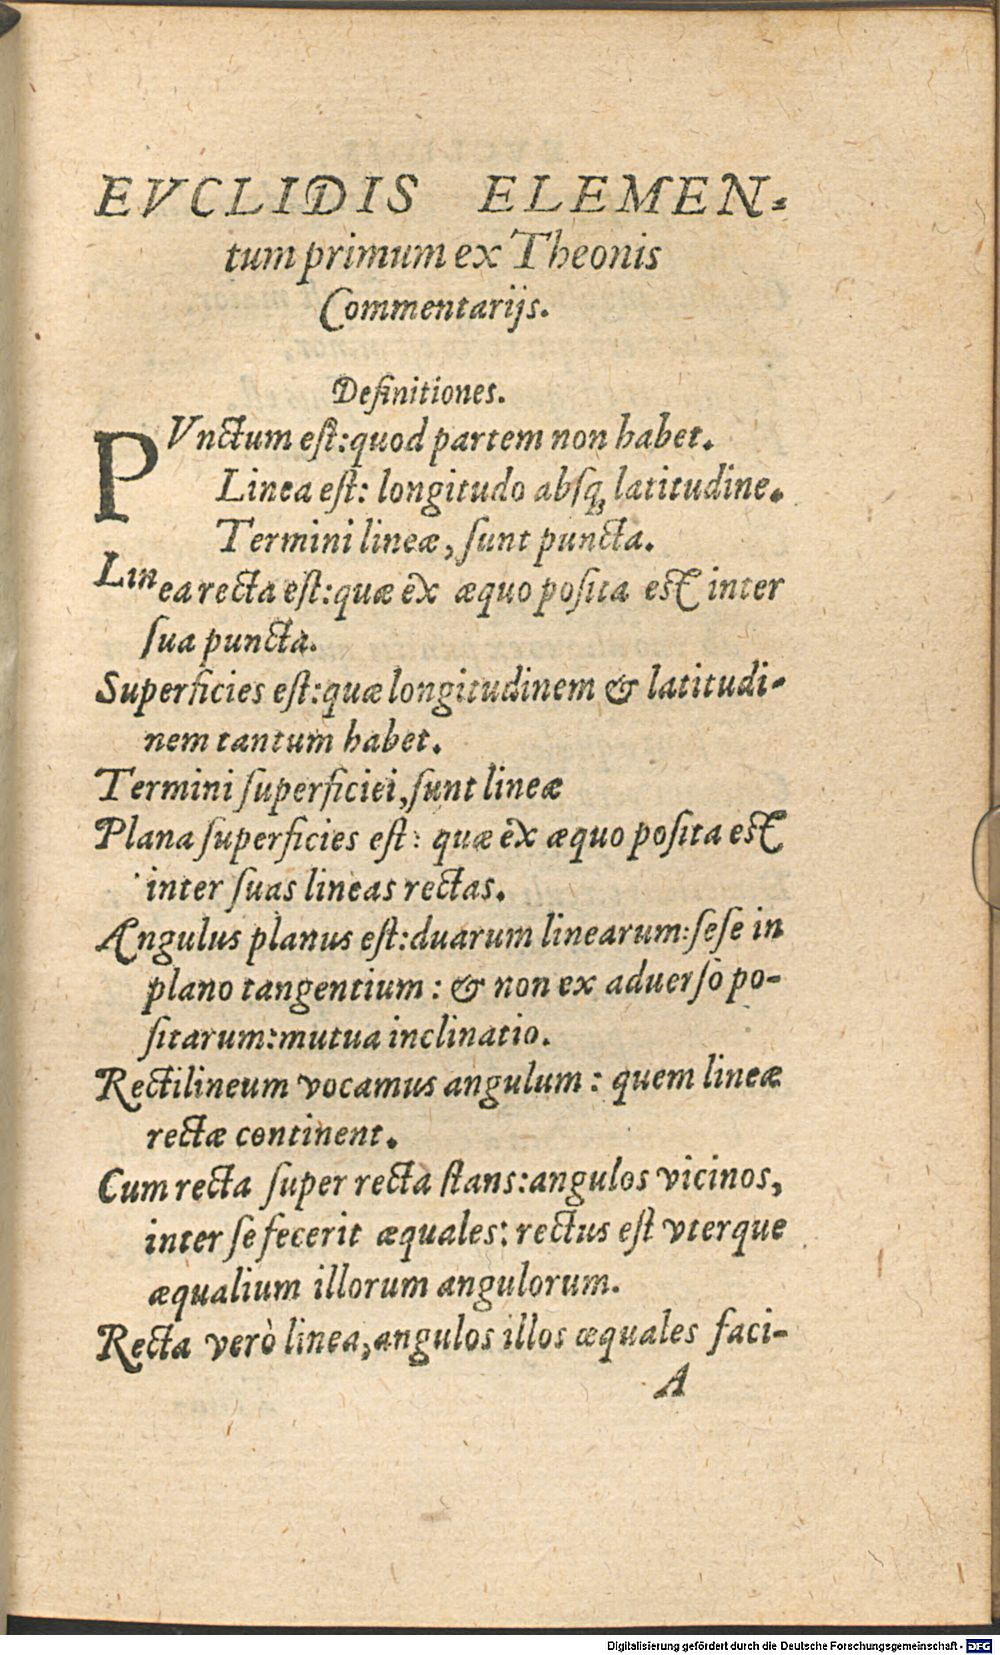 EVCLIDIS ELEMEN-
tum primum ex Theonis
Commentarijs.
Definitiones.
PVnctum eſt: quod partem non habet.
Linea eſt: longitudo abſq; latitudine.
Termini lineæ, ſunt puncta.
Linea recta eſt: quæ ex æquo poſita est inter
ſua puncta.
Superficies eſt: quæ longitudinem & latitudi-
nem tantum habet.
Termini ſuperficiei, ſunt lineæ
Plana ſuperficies eſt: quæ ex æquo poſita est
inter ſuas lineas rectas.
Angulus planus eſt: duarum linearum: ſeſe in
plano tangentium: & non ex aduerſo po-
ſitarum: mutua inclinatio.
Rectilineum vocamus angulum: quem lineæ
rectæ continent.
Cum recta ſuper recta ſtans: angulos vicinos,
inter ſe fecerit æquales: rectus eſt vterque
æqualium illorum angulorum.
Recta verò linea, angulos illos æquales faci-
A
Digitalisierung gefördert durch die Deutsche Forschungsgemeinschaft - DFG